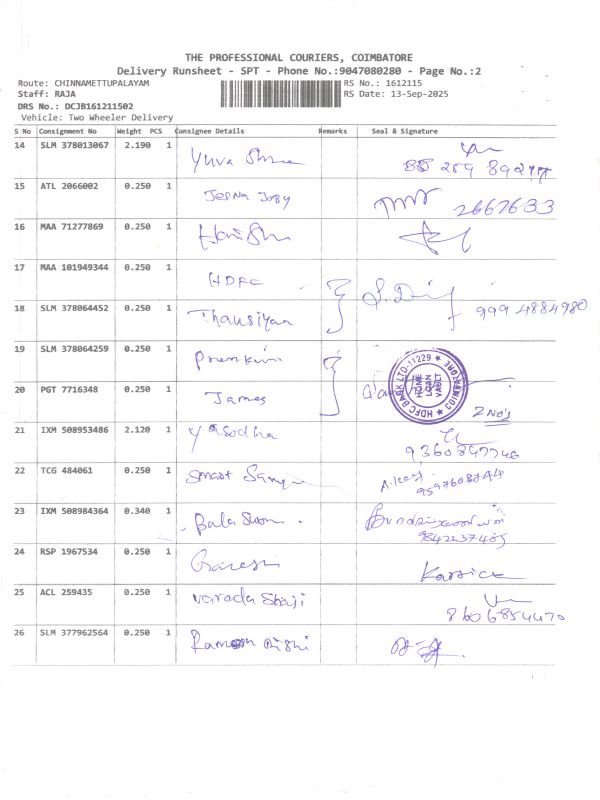 THE PROFESSIONAL COURIERS, COIMBATORE
Delivery Runsheet - SPT - Phone No.:9047080280 - Page No.:2
Route: CHINNAMETTUPALAYAM RS No.: 1612115
Staff: RAJA RS Date: 13-Sep-2025
DRS No.: DCJB161211502
Vehicle: Two Wheeler Delivery
S No Consignment No Weight PCS Consignee Details Remarks Seal & Signature
14 SLM 378013067 2.190 1 Yuva
15 ATL 2066002 0.250 1 Jesna Joby 2667633
16 MAA 71277869 0.250 1
17 MAA 101949344 0.250 1 HDFC
18 SLM 378064452 0.250 1 Thausiyan 999 4884980
19 SLM 378064259 0.250 1 Premkumar
20 PGT 7716348 0.250 1 James
HDFC BANK LTD-11229 ★ COIMBATORE ★
HOME LOAN VAULT
2 NO's
21 IXM 508953486 2.120 1 Yasodha
9360847746
22 TCG 484061 0.250 1 Smart
9597608744
23 IXM 508984364 0.340 1 Bala
9842237485
24 RSP 1967534 0.250 1 Ganesh Karthick
25 ACL 259435 0.250 1 Varada Shaji
8606854470
26 SLM 377962564 0.250 1 Rishi